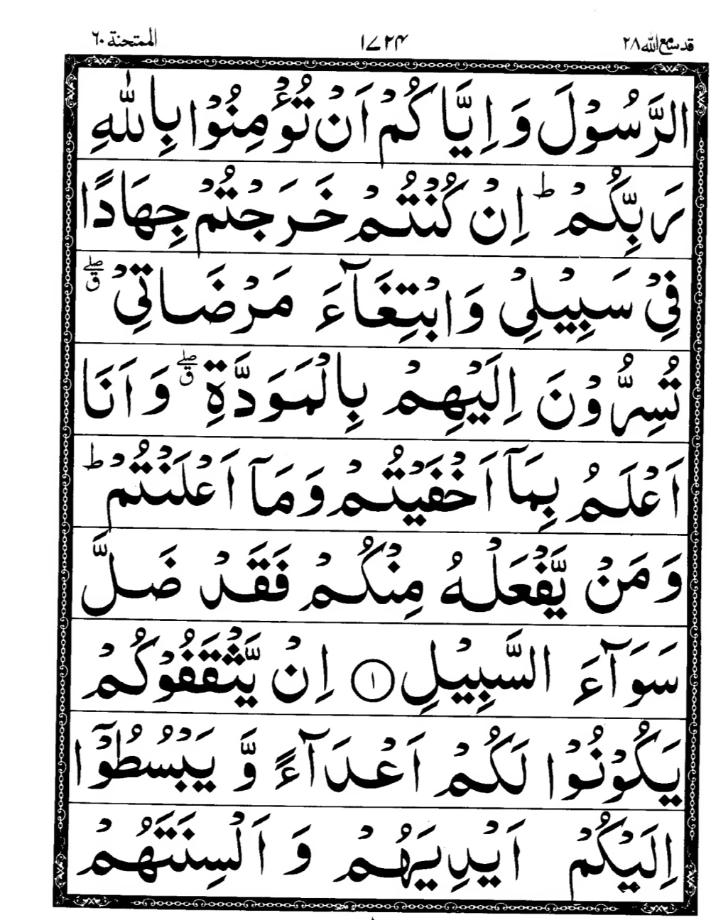 قد سمع الله ٢٨ ١٧٢٤ الممتحنة ٦٠
الرَّسُوْلَ وَاِيَّاكُمْ اَنْ تُؤْمِنُوْا بِاللّٰهِ
رَبِّكُمْ ؕ اِنْ كُنْتُمْ خَرَجْتُمْ جِهَادًا
فِيْ سَبِيْلِيْ وَابْتِغَآءَ مَرْضَاتِيْ ۖق
تُسِرُّوْنَ اِلَيْهِمْ بِالْمَوَدَّةِ ۖق وَاَنَا
اَعْلَمُ بِمَآ اَخْفَيْتُمْ وَمَآ اَعْلَنْتُمْ ؕ
وَمَنْ يَّفْعَلْهُ مِنْكُمْ فَقَدْ ضَلَّ
سَوَآءَ السَّبِيْلِ ۝١ اِنْ يَّثْقَفُوْكُمْ
يَكُوْنُوْا لَكُمْ اَعْدَآءً وَّ يَبْسُطُوْٓا
اِلَيْكُمْ اَيْدِيَهُمْ وَ اَلْسِنَتَهُمْ